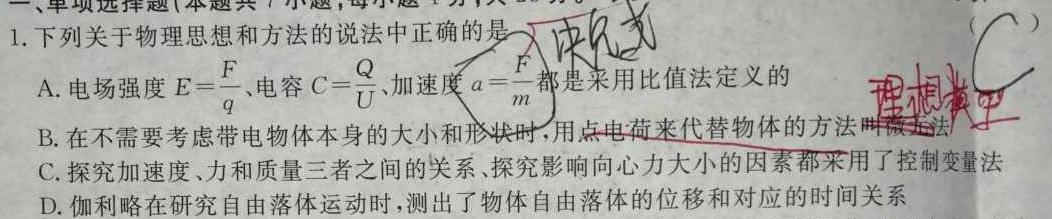 一、单项选择题(本题共7小题,每小题4分,共28分。
1.下列关于物理思想和方法的说法中正确的是 ( C )
决定式
A.电场强度 E=F/q、电容 C=Q/U、加速度 a=F/m 都是采用比值法定义的
理想模型
B.在不需要考虑带电物体本身的大小和形状时,用点电荷来代替物体的方法叫微元法
C.探究加速度、力和质量三者之间的关系、探究影响向心力大小的因素都采用了控制变量法
D.伽利略在研究自由落体运动时,测出了物体自由落体的位移和对应的时间关系